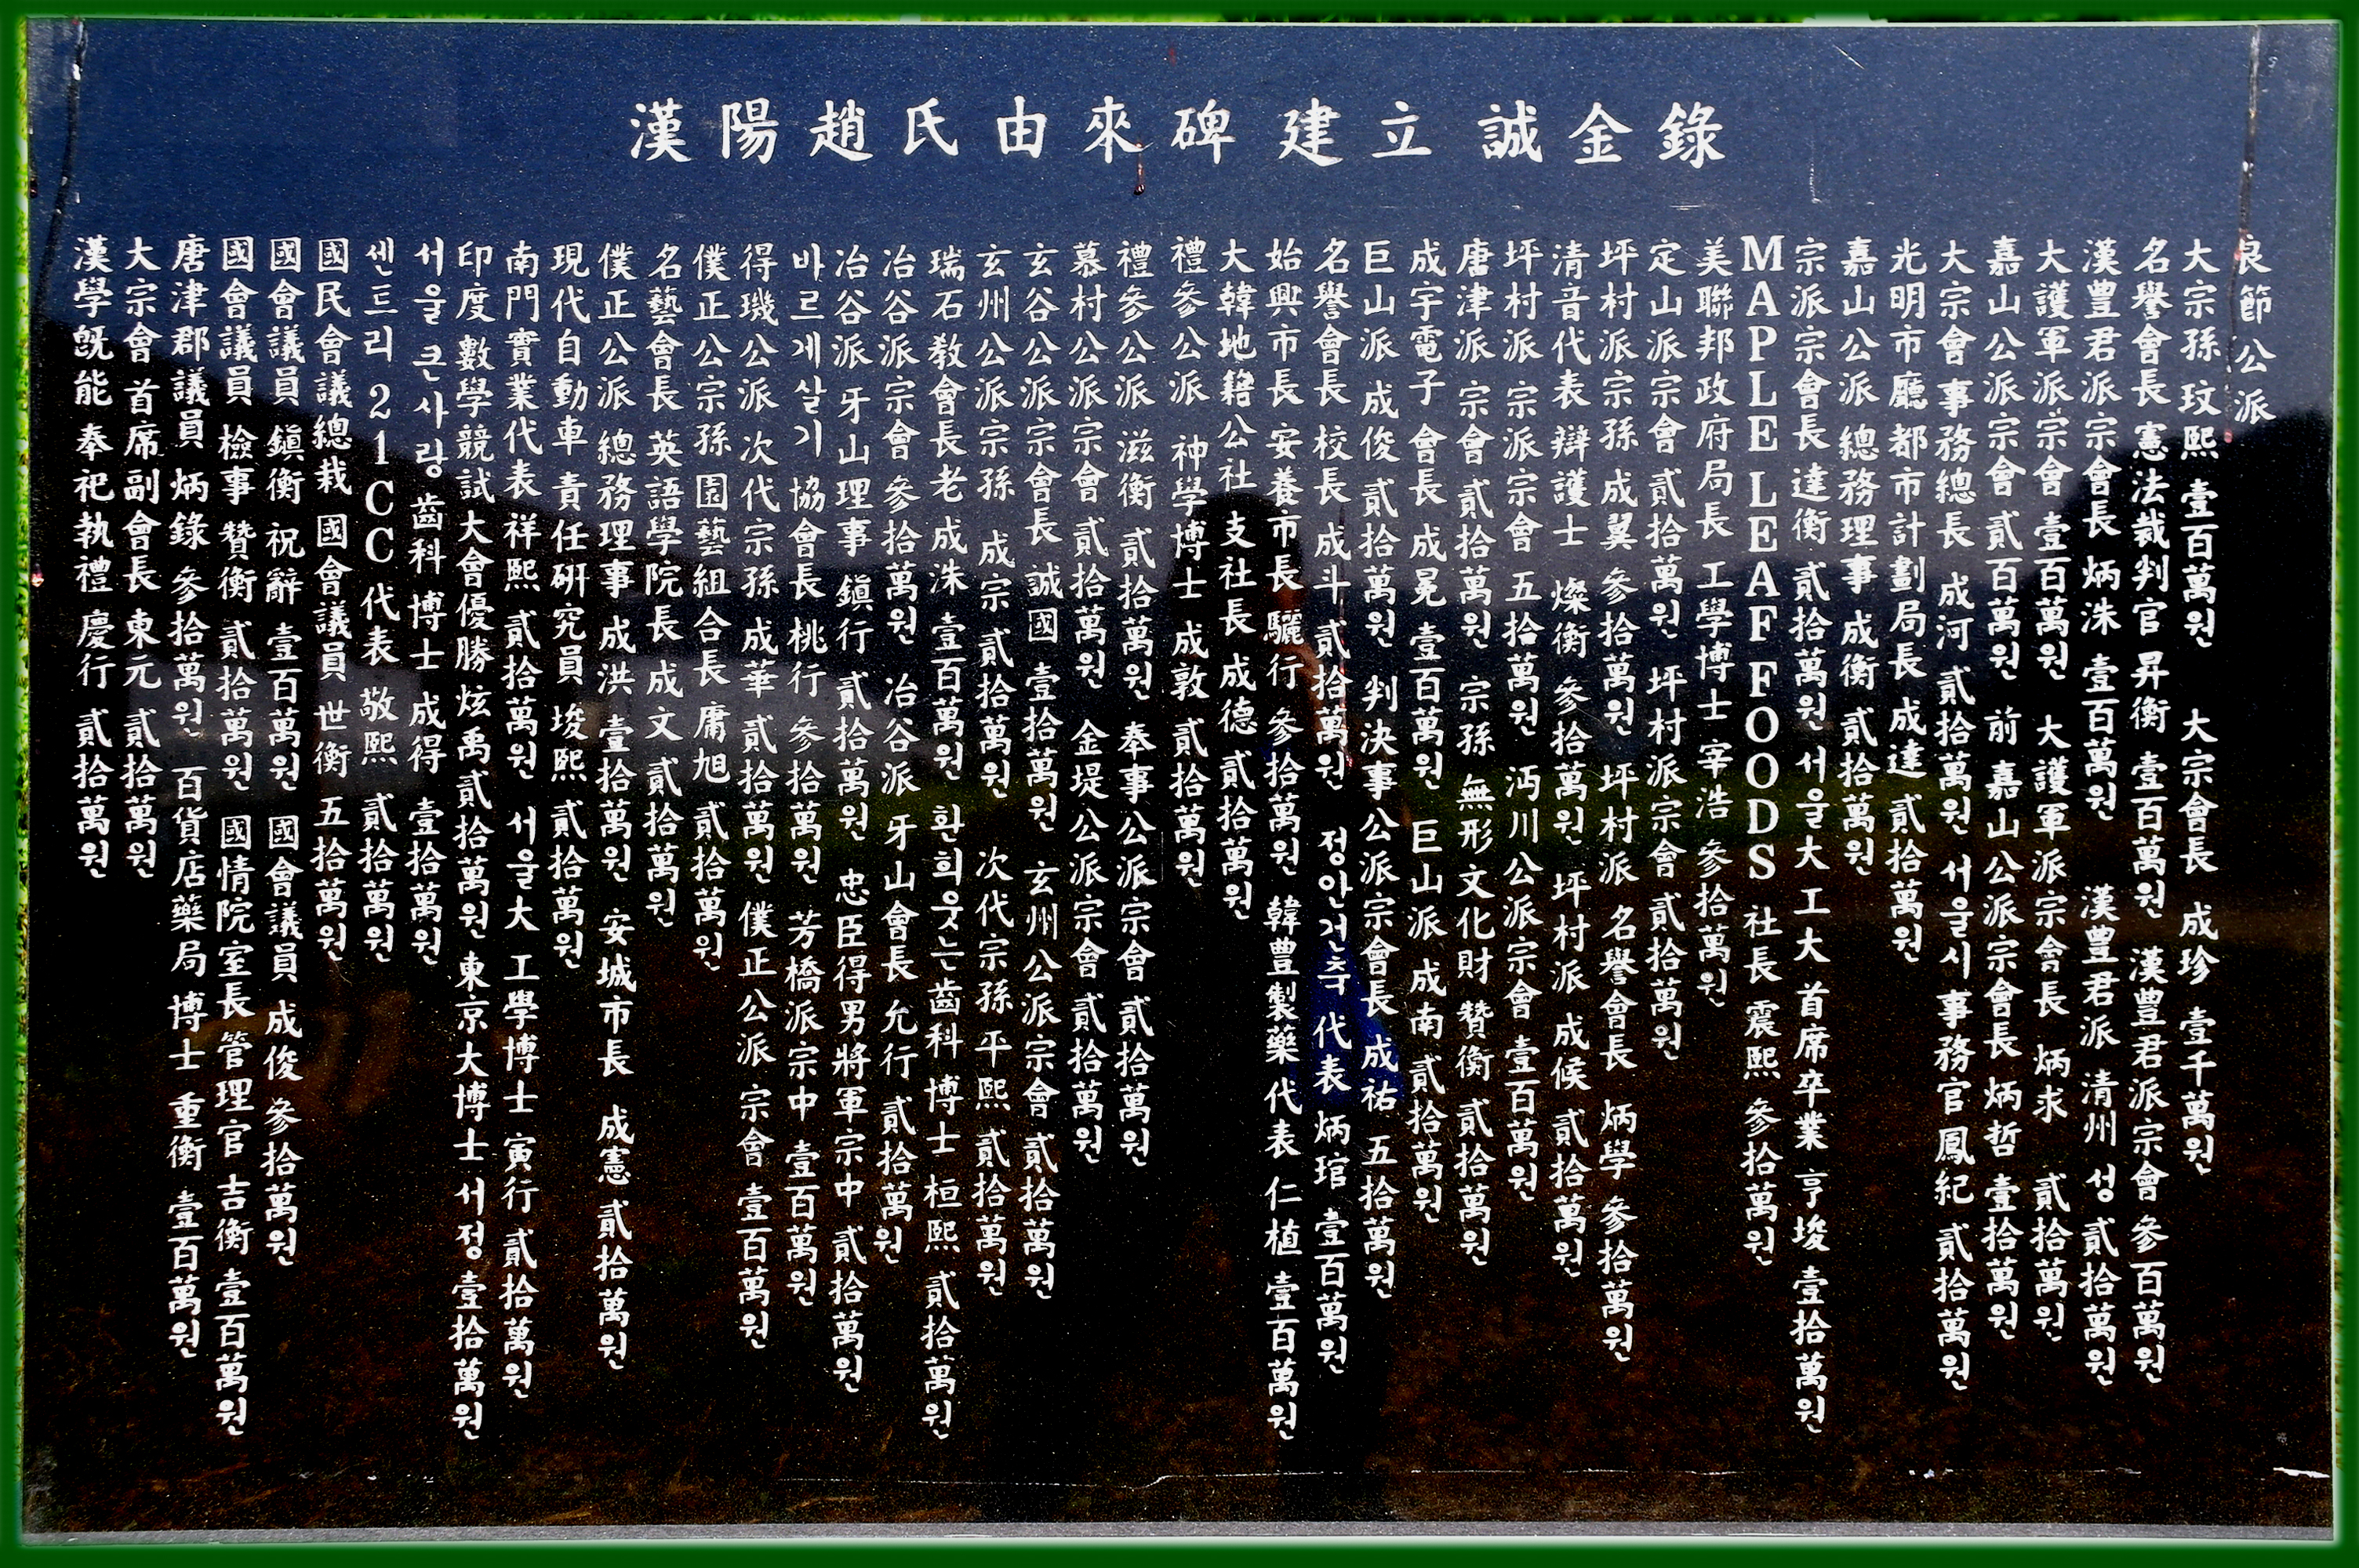 漢陽趙氏由來碑 建立 誠金錄
良節公派
大宗孫 玟熙 壹百萬원 大宗會長 成珍 壹千萬원
名譽會長 憲法裁判官 昇衡 壹百萬원 漢豊君派宗會 參百萬원
漢豊君派宗會長 炳洙 壹百萬원 漢豊君派 清州 성 貳拾萬원
大護軍派宗會 壹百萬원 大護軍派宗會長 炳求 貳拾萬원
嘉山公派宗會 貳百萬원 前 嘉山公派宗會長 炳哲 壹拾萬원
大宗會 事務總長 成河 貳拾萬원 서울시 事務官 鳳紀 貳拾萬원
光明市廳都市計劃局長 成達 貳拾萬원
嘉山公派 總務理事 成衡 貳拾萬원
宗派宗會長 達衡 貳拾萬원 서울大工大 首席卒業 亨埈 壹拾萬원
MAPLE LEAF FOODS 社長 震熙 參拾萬원
美聯邦政府局長 工學博士 宰浩 參拾萬원
定山派宗會 貳拾萬원 坪村派宗會 貳拾萬원
坪村派宗孫 成翼 參拾萬원 坪村派 名譽會長 炳學 參拾萬원
清音代表 辯護士 燦衡 參拾萬원 坪村派 成候 貳拾萬원
坪村派 宗派宗會 五拾萬원 沔川公派宗會 壹百萬원
唐津派 宗會 貳拾萬원 宗孫 無形文化財 贊衡 貳拾萬원
成宇電子 會長 成冕 壹百萬원 巨山派 成南 貳拾萬원
巨山派 成俊 貳拾萬원 判決事公派宗會長 成祐 五拾萬원
名譽會長 校長 成斗 貳拾萬원 정안건축 代表 炳琯 壹百萬원
始興市長 安養市長 驪行 參拾萬원 韓豊製藥 代表 仁植 壹百萬원
大韓地籍公社 支社長 成德 貳拾萬원
禮參公派 神學博士 成敦 貳拾萬원
禮參公派 滋衡 貳拾萬원 奉事公派宗會 貳拾萬원
慕村公派宗會 貳拾萬원 金堤公派宗會 貳拾萬원
玄谷公派宗會長 誠國 壹拾萬원 玄州公派宗會 貳拾萬원
玄州公派宗孫 成宗 貳拾萬원 次代宗孫 平熙 貳拾萬원
瑞石敎會長老 成洙 壹百萬원 환희웃는齒科 博士 桓熙 貳拾萬원
冶谷派宗會 參拾萬원 冶谷派 牙山會長 允行 貳拾萬원
冶谷派 牙山理事 鎭行 貳拾萬원 忠臣得男將軍宗中 貳拾萬원
바르게살기 協會長 桃行 參拾萬원 芳橋派宗中 壹百萬원
得璣公派 次代宗孫 成華 貳拾萬원 僕正公派 宗會 壹百萬원
僕正公宗孫 園藝組合長 庸旭 貳拾萬원
名藝會長 英語學院長 成文 貳拾萬원
僕正公派 總務理事 成洪 壹拾萬원 安城市長 成憲 貳拾萬원
現代自動車 責任硏究員 埈熙 貳拾萬원
南門實業代表 祥熙 貳拾萬원 서울大 工學博士 寅行 貳拾萬원
印度數學競試大會優勝 炫禹 貳拾萬원 東京大博士 서정 壹拾萬원
서울큰사랑 齒科博士 成得 壹拾萬원
센트리 21CC 代表 敬熙 貳拾萬원
國民會議總裁 國會議員 世衡 五拾萬원
國會議員 鎭衡 祝辭 壹百萬원 國會議員 成俊 參拾萬원
國會議員 檢事 贊衡 貳拾萬원 國情院室長 管理官 吉衡 壹百萬원
唐津郡議員 炳錄 參拾萬원 百貨店藥局 博士 重衡 壹百萬원
大宗會 首席副會長 東元 貳拾萬원
漢學旣能 奉祀執禮 慶行 貳拾萬원